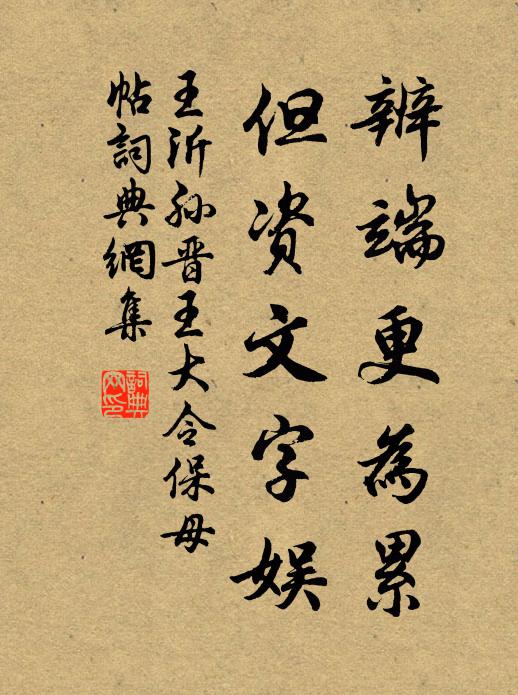 辨端更為累
但資文字娱
王沂孙晋王大令保母
帖詞典網集
詞典网印